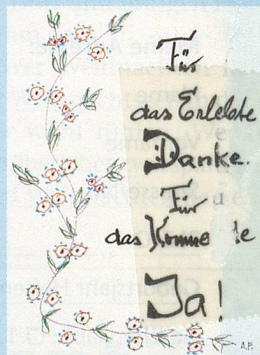 Für
das Erlebte
Danke.
Für
das Komme te
Ja!
A.P.